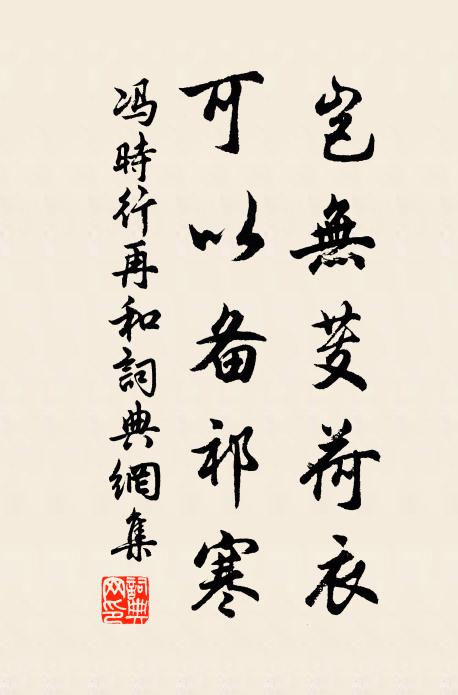 豈無芰荷衣
可以备祁寒
冯時行再和詞典網集
詞典
网印